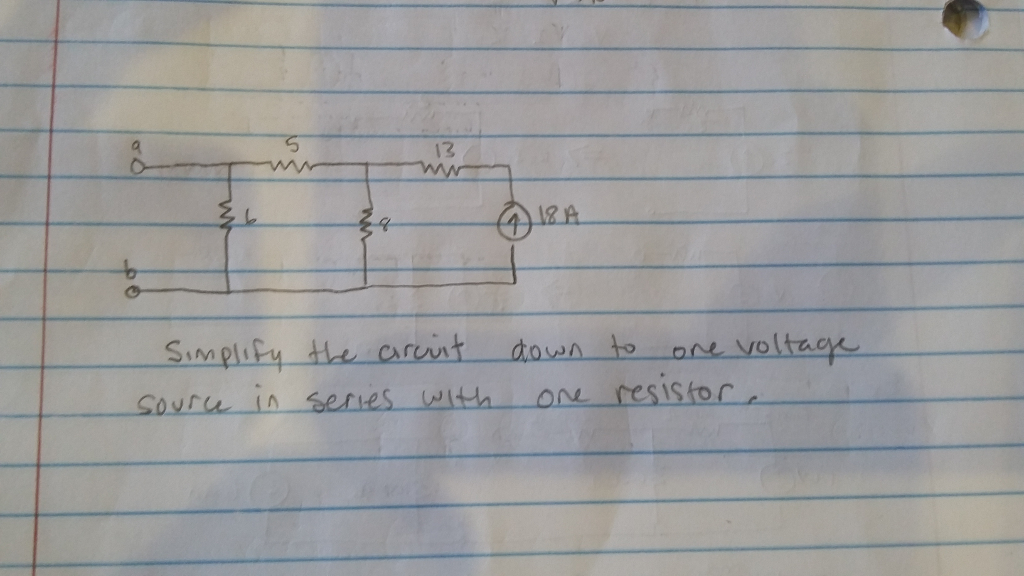 a
5
13
6
8
18A
b
Simplify the circuit down to one voltage
source in series with one resistor.